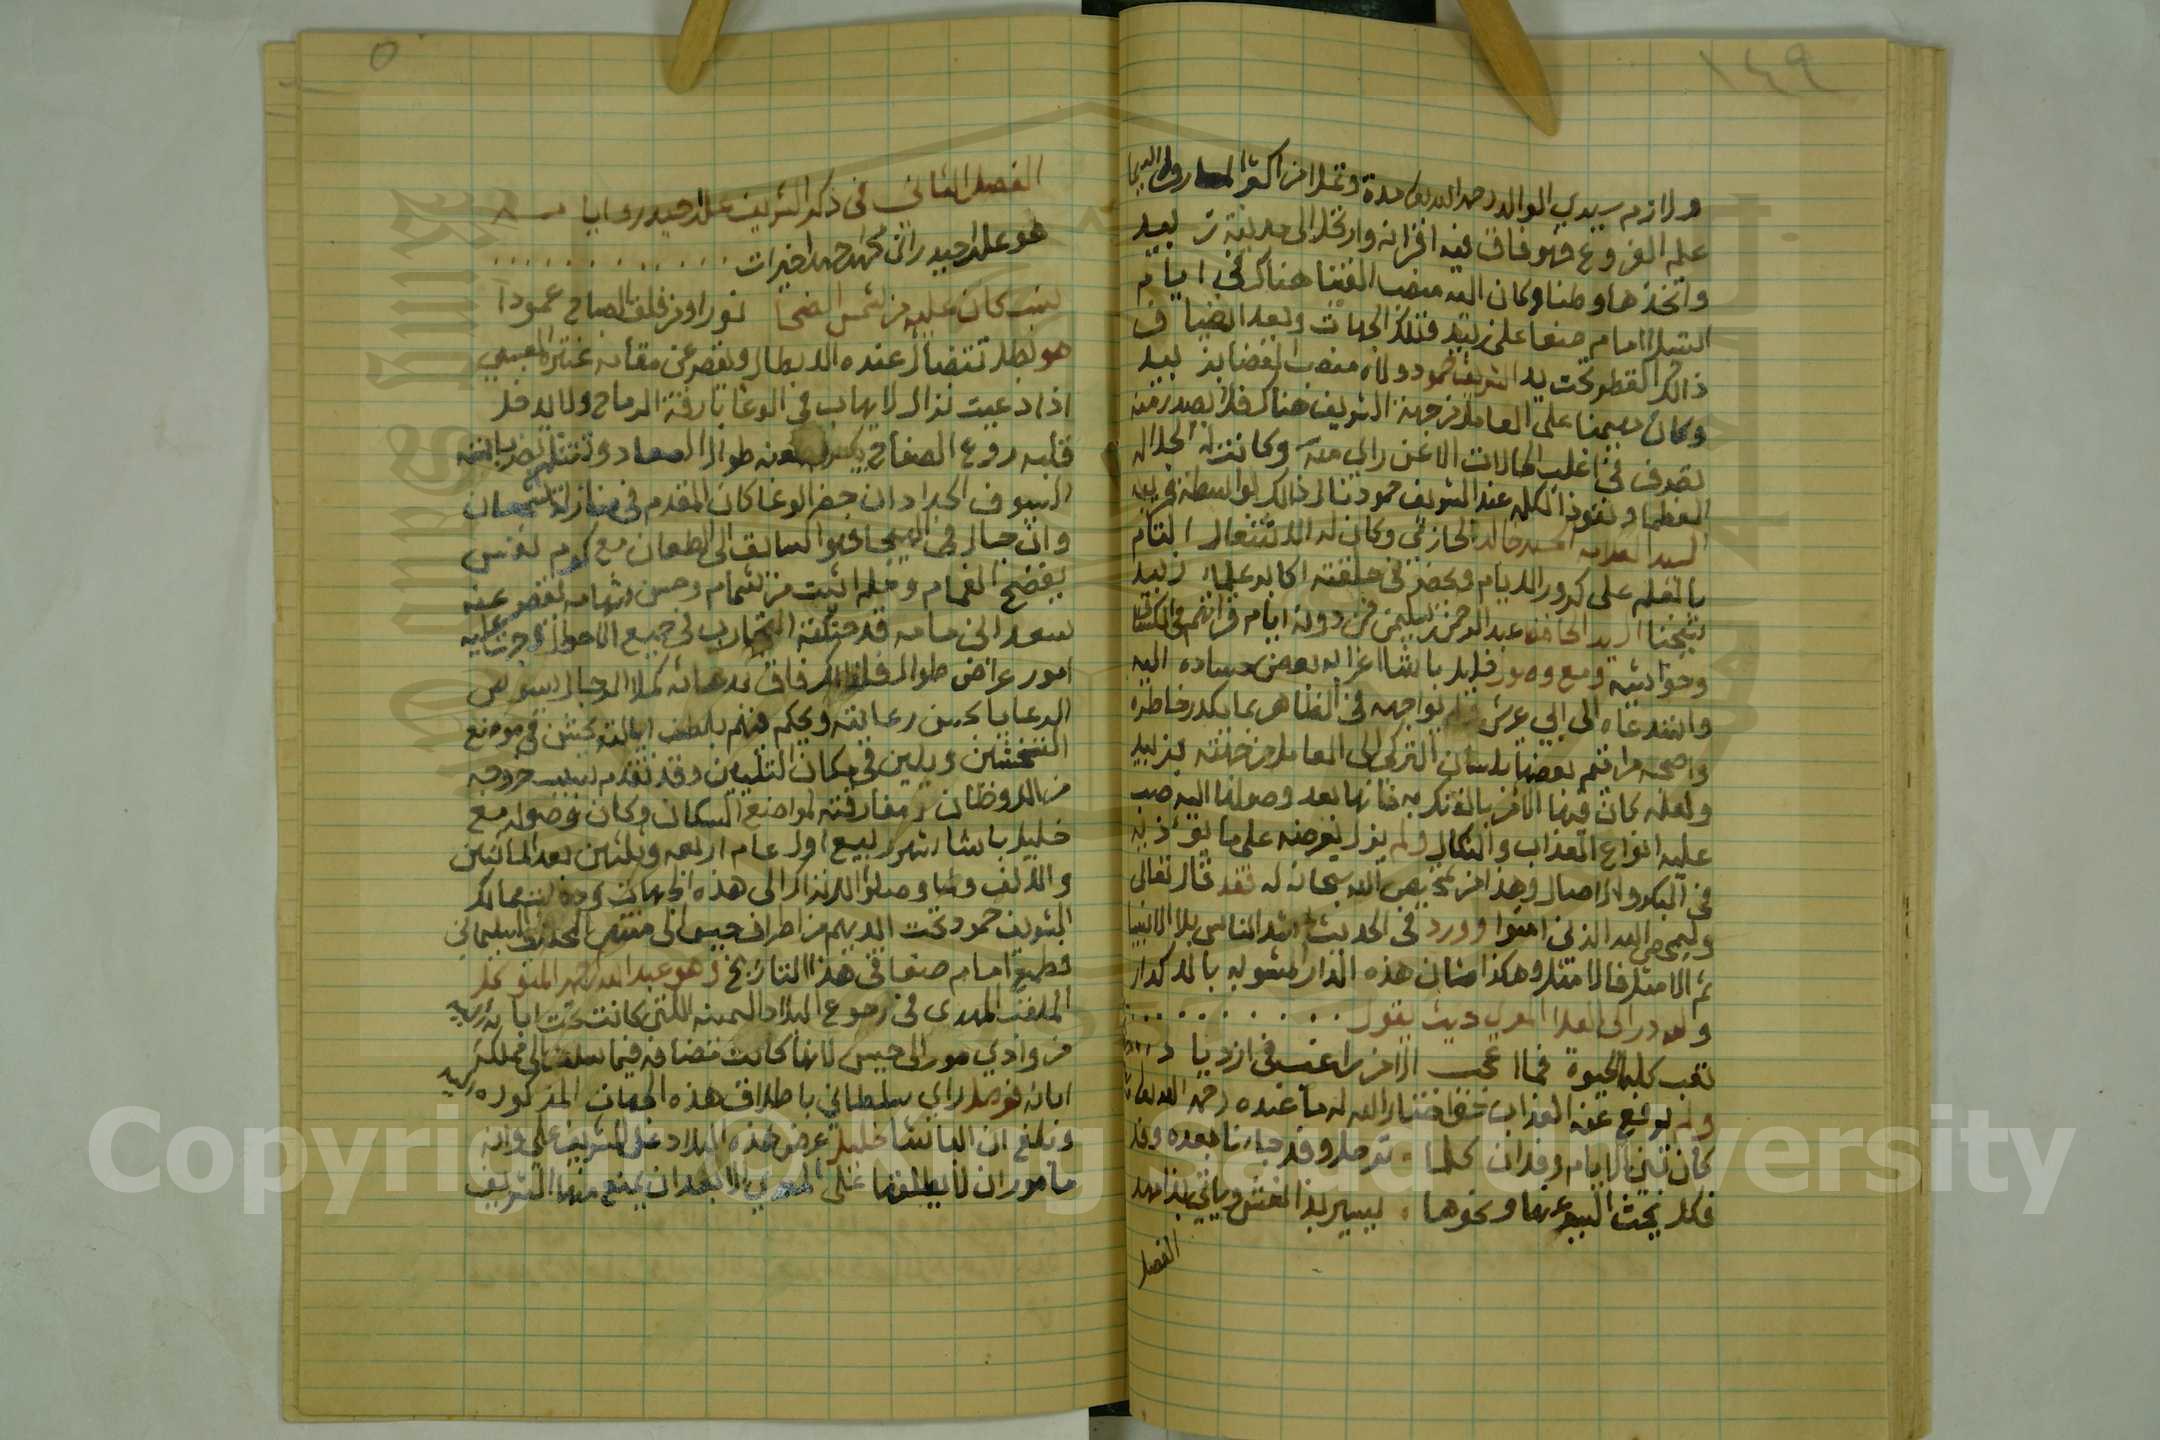 ١٤٩
ولازم سيدي الوالد رحمه الله مدة وتملا من اكثر المعارف ولا سيما
علم الفروع فهو فاق فيه اقرانه وارتحل الى مدينة زبيد
واتخذها وطنا وكان اليه منصب الفتيا هناك في ايام
استيلا امام صنعا على زبيد وتلك الجهات وبعد انضياف
ذالك القطر تحت يد الشريف حمود ولاه منصب القضا بزبيد
وكان مهيمنا على العامل من جهة الشريف هناك فلا يصدر منه
تصرف في اغلب الحالات الا عن راي منه وكانت له الجلاله
العظما ونفوذ الكلمه عند الشريف حمود نال ذالك بواسطة قريبه
السيد العلامه الحسن خالد الحازمي وكان له الاشتغال التام
بالعلم على كرور الايام ويحضر في حلقته اكابر علماء زبيد
شيخنا السيد الحافظ عبد الرحمن سليمن فمن دونه ايام قراتهم في الكشاف
وحواشيه ومع وصول خليل باشا اغرا به بعض حساده اليه
واستدعاه الى ابي عريش فلم يواجهه في الظاهر بما يكدر خاطره
واصحبه مراقيم بعضها بلسان التركي الى العامل من جهته بزبيد
ولعله كان فيها الامر بالفتك به فانها بعد وصولها اليه صب
عليه انواع العذاب والنكال ولم يزل يعرضه على ما يؤذيه
في البكر والاصال وهذا من تمحيص الله سبحانه له فقد قال تعالى
وليمحص الله الذين امنوا وورد في الحديث اشد الناس بلا الانبيا
ثم الامثل فالامثل وهكذا شان هذه الدار مشوبه بالاكدار
ولله در ابي العلا المعري حيث يقول . . . . . . . .
تعب كلها الحيوة فما اعجب الا من راغب في ازدياد
ولم يرفع عنه العذاب حتى اختار الله له ما عنده رحمه الله
كان تيك الايام وقد ان كلما . ترحل وقد جاءنا بعده وفد
فكل نحث السير عنها ونحوها . يسير بذا نعش وياتي بذا مهد
الفصل
٥
الفصل الثاني في ذكر الشريف علي حيدر وايامه
هو علي حيدر ابن محمد احمد خيرات . . . . . . . . . .
نسب كان عليه من شمس الضحا نورا ومن فلق الصباح عمودا
هو بطل تتضال عنده الابطال ويقصر عن مقامه عنتر العبسي
اذا دعيت نزال لا يهاب في الوغا بارقة الرماح ولا يدخل
قلبه روع الصفاح يكسر بطعنه طوال الصعاد وتتثلم بضربانه
السيوف الحداد ان حضر الوغا كان المقدم في منازلة الشجعان
وان جال في الهيجا فهو السابق الى الطعان مع كرم نفس
يفضح الغمام وحلم اثبت من شمام وحسن شهامه تقصر عنه
سعد ابن مامه قد حنكته التجارب في جميع الاحوال وجرت عليه
امور عراض طوال فلذالك فاق بدهائه كملا الرجال يسوس
الرعايا بحسن رعايته ويحكم فيهم بلطف ايالته يخشن في موضع
التخشين ويلين في مكان التليين وقد تقدم سبب خروجه
من الاوطان ومفارقته لمواضع السكان وكان وصوله مع
خليل باشا شهر ربيع اول عام اربعه وثلثين بعد المائتين
والالف ولما وصلوا الاتراك الى هذه الجهات وجدوا ممالك
الشريف حمود تحت ايديهم من اطراف حيس الى منتهى المخلاف السليماني
وطمع امام صنعا في هذا التاريخ وهو عبد الله احمد المتوكل
الملقب المهدي في رجوع البلاد اليمنيه اللتي كانت تحت ابائه
من وادي مور الى حيس لانها كانت مضافه فيما سلف الى مملكة
ابائه فوصل راي سلطاني باطلاق هذه الجهات المذكوره اليه
وبلغ ان الباشا خليل عرض هذه البلاد على الشريف علي وانه
مامور ان لا يطلقها على المهدي الا بعد ان يمتنع منها الشريف